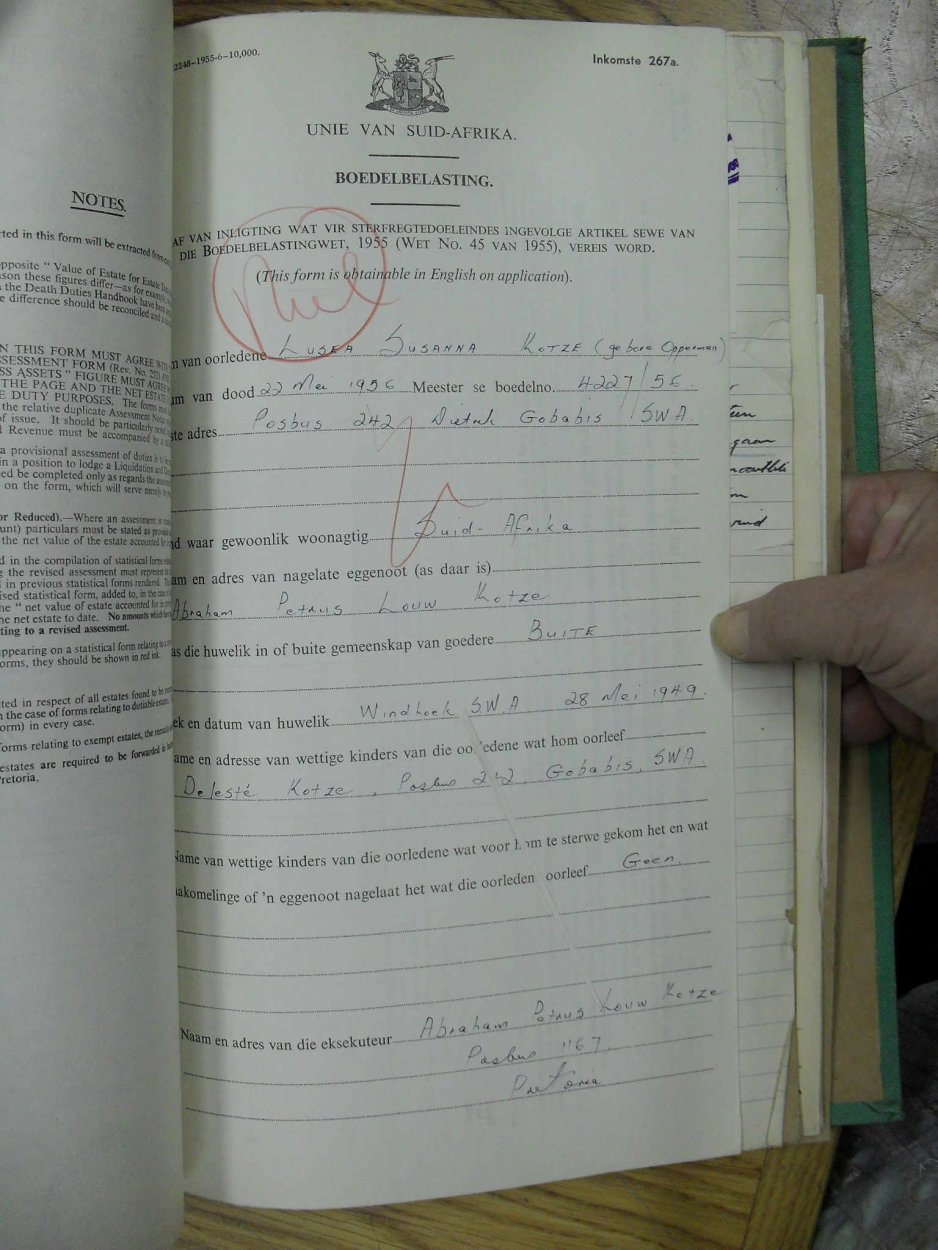 NOTES.
ted in this form will be extracted from
pposite " Value of Estate for Estate
son these figures differ—as for example
the Death Duties Handbook have been
e difference should be reconciled and a
N THIS FORM MUST AGREE WITH
SSESSMENT FORM (Rev. No. 252) AND
SS ASSETS " FIGURE MUST AGREE
THE PAGE AND THE NET ESTATE
E DUTY PURPOSES. The forms must
the relative duplicate Assessment Notice
of issue. It should be particularly noted
l Revenue must be accompanied by a
a provisional assessment of duties is to be
in a position to lodge a Liquidation and
ed be completed only as regards the
on the form, which will serve merely to
or Reduced).—Where an assessment is
ount) particulars must be stated as provided
the net value of the estate accounted for
d in the compilation of statistical forms
g the revised assessment must represent
in previous statistical forms rendered.
ised statistical form, added to, in the case of
he " net value of estate accounted for
he net estate to date. No amounts which have
ting to a revised assessment.
ppearing on a statistical form relating to
orms, they should be shown in red ink.
ted in respect of all estates found to be
n the case of forms relating to dutiable
orm) in every case.
forms relating to exempt estates, the
estates are required to be forwarded
retoria.
2248—1955-6—10,000.
Inkomste 267a.
UNIE VAN SUID-AFRIKA.
BOEDELBELASTING.
AF VAN INLIGTING WAT VIR STERFREGTEDOELEINDES INGEVOLGE ARTIKEL SEWE VAN
DIE BOEDELBELASTINGWET, 1955 (WET NO. 45 VAN 1955), VEREIS WORD.
(This form is obtainable in English on application).
m van oorledene Lusea Susanna Kotze (gebore Opperman)
um van dood 22 Mei 1956 Meester se boedelno. 4227/56.
ste adres Posbus 242 Gobabis SWA.
nd waar gewoonlik woonagtig Suid-Afrika
am en adres van nagelate eggenoot (as daar is)
Abraham Petrus Louw Kotze
as die huwelik in of buite gemeenskap van goedere BUITE
ek en datum van huwelik Windhoek SWA 28 Mei 1949.
ame en adresse van wettige kinders van die oorledene wat hom oorleef
Delesté Kotze, Posbus 242, Gobabis, SWA.
Name van wettige kinders van die oorledene wat voor hom te sterwe gekom het en wat
akomelinge of 'n eggenoot nagelaat het wat die oorleden oorleef Geen.
Naam en adres van die eksekuteur Abraham Petrus Louw Kotze
Posbus 1167,
Pretoria